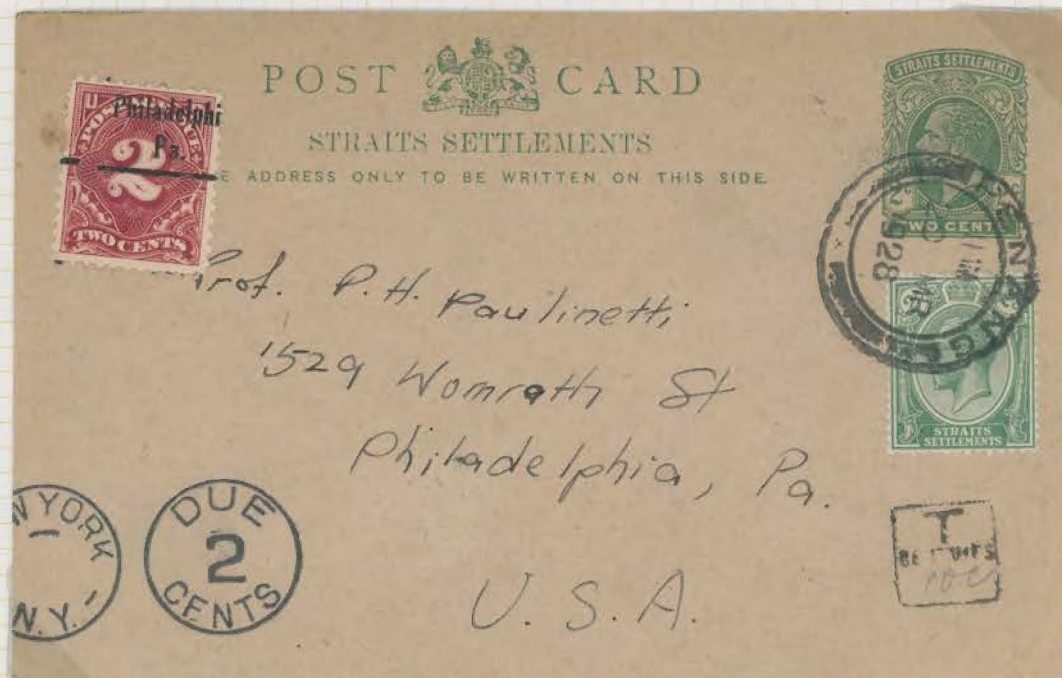 POST CARD
STRAITS SETTLEMENTS
E ADDRESS ONLY TO BE WRITTEN ON THIS SIDE.
U
Philadelphi
Pa.
2
TWO CENTS
STRAITS SETTLEMENTS
WO CENT
1928
STRAITS
SETTLEMENTS
Prof. P. H. Paulinetti
1529 Womrath St
Philadelphia, Pa.
U. S. A.
W YORK
N.Y.
DUE
2
CENTS
T